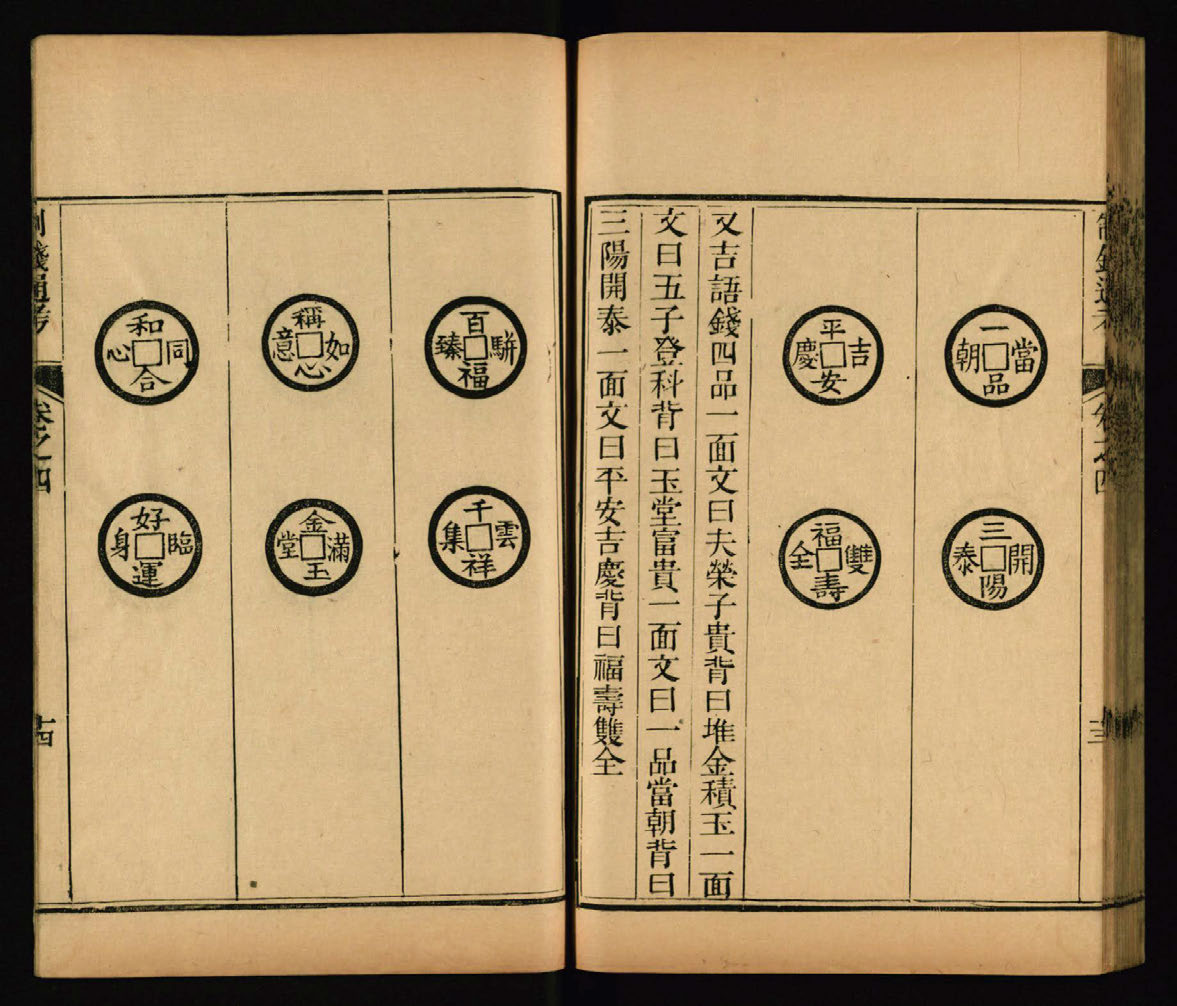 制錢通考
卷之四
十三
一品當朝
三陽開泰
平安吉慶
福壽雙全
又吉語錢四品一面文曰夫榮子貴背曰堆金積玉一面
文曰五子登科背曰玉堂富貴一面文曰一品當朝背曰
三陽開泰一面文曰平安吉慶背曰福壽雙全
百福駢臻
千祥雲集
稱心如意
金玉滿堂
和合同心
好運臨身
制錢通考
卷之四
十四